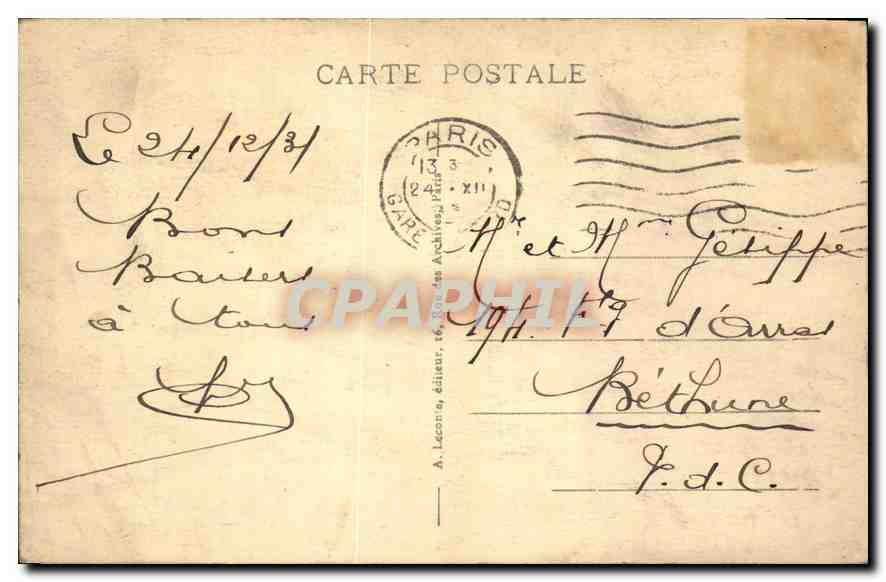 CARTE POSTALE
Le 24/12/31
Bons
Baisers
à tous
PARIS
13
24 XII
GARE
A. Leconte, éditeur, 16, Rue des Archives, Paris
CPAPHIL
Mr et Mme
194. Fg d'Arras
Béthune
P.d.C.